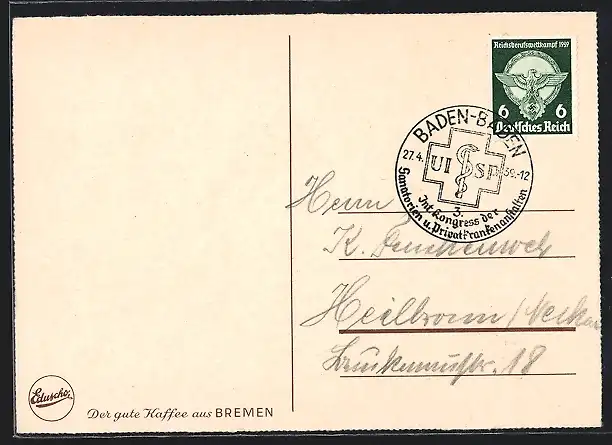 Reichsberufswettkampf 1939
6 6
Deutsches Reich
BADEN-BADEN
27.4. 39.-12
UI SP
3.
Int. Kongress der
Sanatorien u. Privatkrankenanstalten
Herrn
K.
Heilbronn/Neckar
18
Eduscho
Der gute Kaffee aus BREMEN